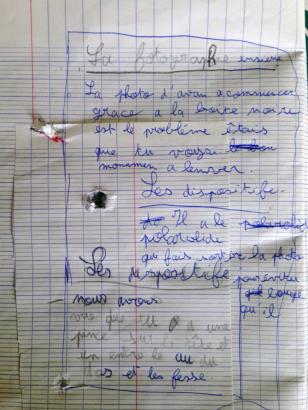 La fotographie ensiene
La photo d'avan a commencer
grace a la boite noire
est le problème étais
que tu voyais
a lenver.
Les dispositife.
Il a le
polaroide
qui fais sortire la photo
Les dispositife
pour
nous avons
vue que tu a une
pine sur la tête et
un entre le du
dos et les fesse
qu'il